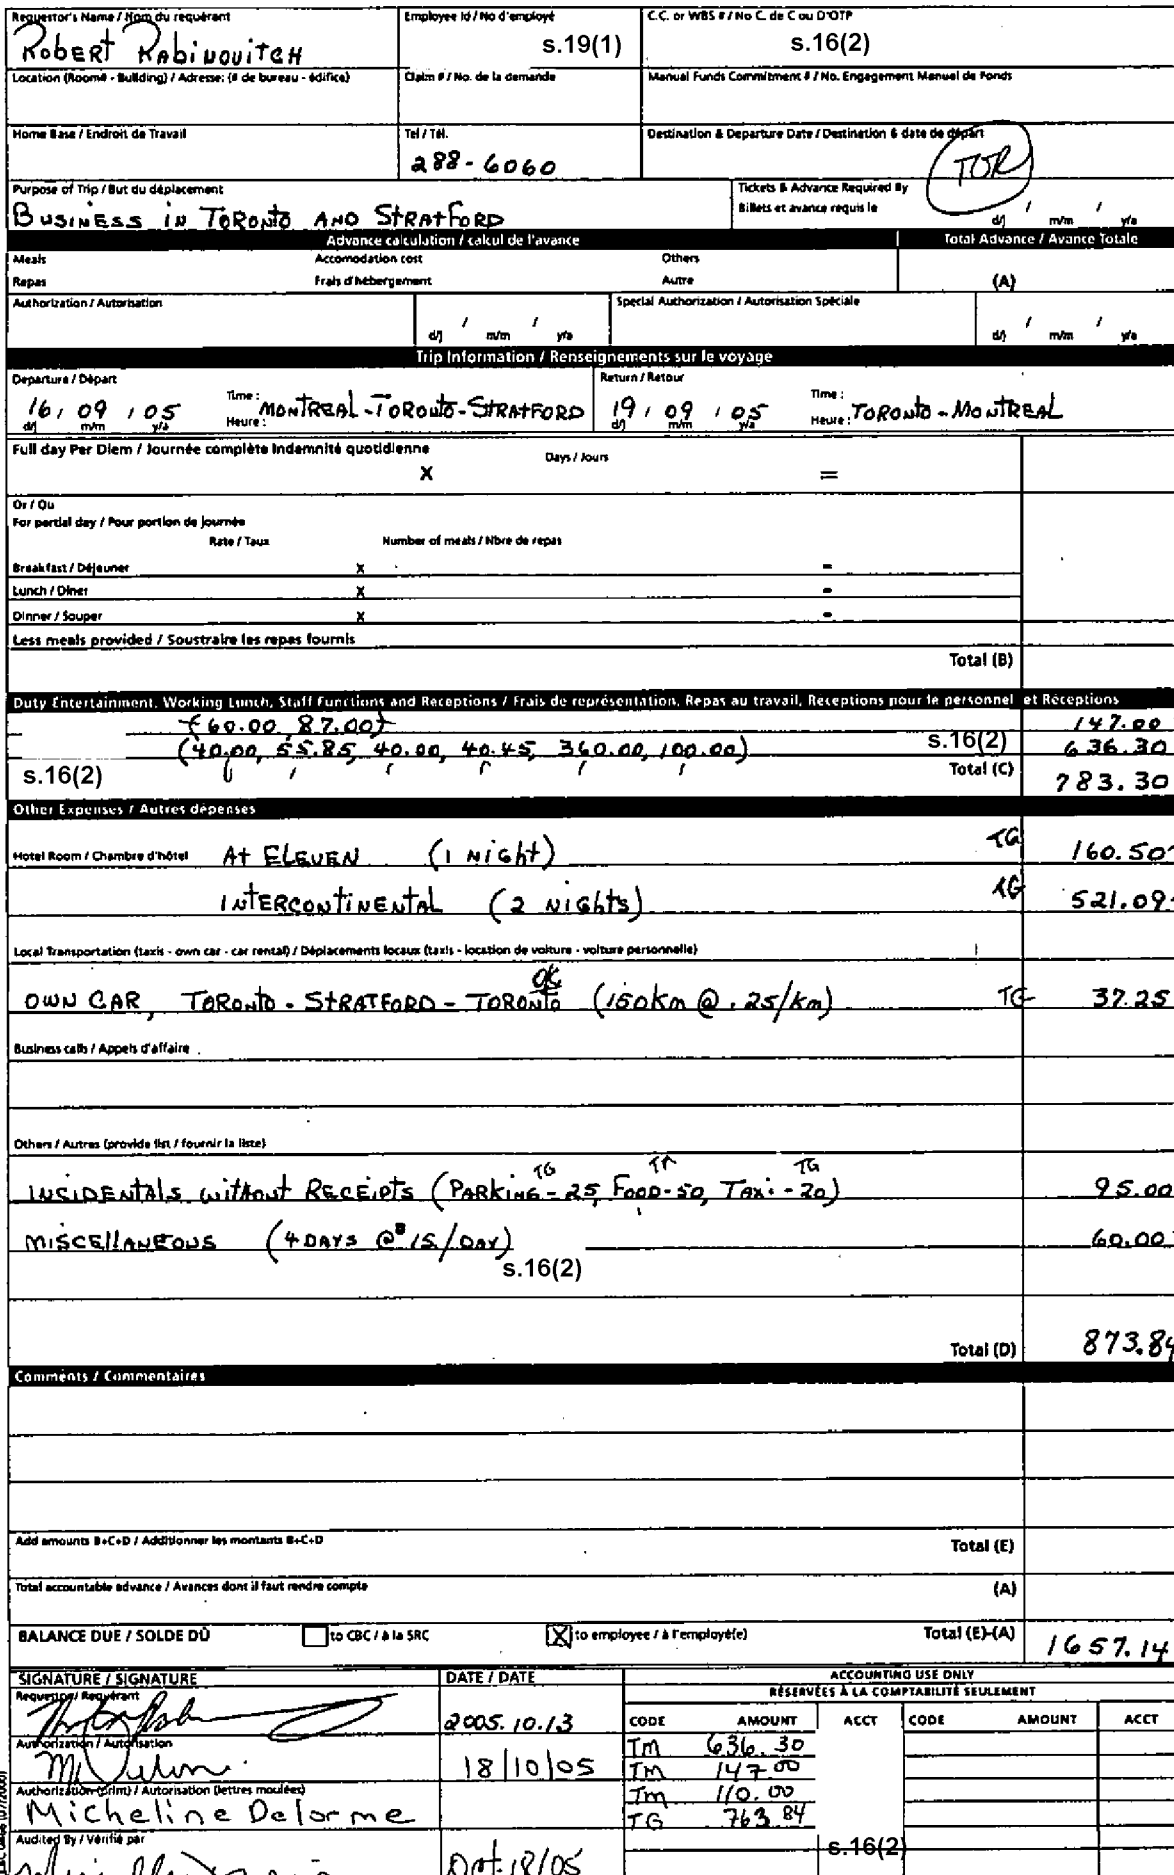 Requestor's Name / Nom du requérant
Robert Rabinovitch
Employee Id / No d'employé
s.19(1)
C.C. or WBS # / No C. de C ou D'OTP
s.16(2)
Location (Room# - Building) / Adresse: (# de bureau - édifice)
Claim # / No. de la demande
Manual Funds Commitment # / No. Engagement Manuel de Fonds
Home Base / Endroit de Travail
Tel / Tél.
288-6060
Destination & Departure Date / Destination & date de départ
TOR
Purpose of Trip / But du déplacement
Business in Toronto and Stratford
Tickets & Advance Required By
Billets et avance requis le
d/j / m/m / y/a
Advance calculation / calcul de l'avance
Total Advance / Avance Totale
Meals Accomodation cost Others
Repas Frais d'hébergement Autre (A)
Authorization / Autorisation
d/j / m/m / y/a
Special Authorization / Autorisation Spéciale
d/j / m/m / y/a
Trip Information / Renseignements sur le voyage
Departure / Départ
16 / 09 / 05
d/j m/m y/a
Time :
Heure :
Montreal-Toronto-Stratford
Return / Retour
19 / 09 / 05
d/j m/m y/a
Time :
Heure :
Toronto-Montreal
Full day Per Diem / Journée complète Indemnité quotidienne
X Days / Jours =
Or / Ou
For partial day / Pour portion de journée
Rate / Taux Number of meals / Nbre de repas
Breakfast / Déjeuner x =
Lunch / Dîner x =
Dinner / Souper x =
Less meals provided / Soustraire les repas fournis
Total (B)
Duty Entertainment, Working Lunch, Staff Functions and Receptions / Frais de représentation, Repas au travail, Réceptions pour le personnel et Réceptions
(60.00, 87.00) 147.00
(40.00, 55.85, 40.00, 40.45, 360.00, 100.00) s.16(2) 636.30
s.16(2) Total (C) 783.30
Other Expenses / Autres dépenses
Hotel Room / Chambre d'hôtel At Eleven (1 Night) TG 160.50
Intercontinental (2 Nights) TG 521.09
Local Transportation (taxis - own car - car rental) / Déplacements locaux (taxis - location de voiture - voiture personnelle)
OK
Own Car, Toronto-Stratford-Toronto (150km @ .25/km) TG 37.25
Business calls / Appels d'affaire
Others / Autres (provide list / fournir la liste)
TG TM TG
Incidentals without Receipts (Parking-25, Food-50, Taxi-20) 95.00
Miscellaneous (4 days @ $15/day) 60.00
s.16(2)
Total (D) 873.84
Comments / Commentaires
Add amounts B+C+D / Additionner les montants B+C+D Total (E)
Total accountable advance / Avances dont il faut rendre compte (A)
BALANCE DUE / SOLDE DÛ to CBC / à la SRC X to employee / à l'employé(e) Total (E)-(A) 1657.14
SIGNATURE / SIGNATURE DATE / DATE
Requestor / Requérant
2005.10.13
Authorization / Autorisation
18/10/05
Authorization (print) / Autorisation (lettres moulées)
Micheline Delorme
Audited By / Vérifié par
Oct. 18/05
ACCOUNTING USE ONLY
RÉSERVÉES À LA COMPTABILITÉ SEULEMENT
CODE AMOUNT ACCT CODE AMOUNT ACCT
TM 636.30
TM 147.00
TM 110.00
TG 763.84
s.16(2)